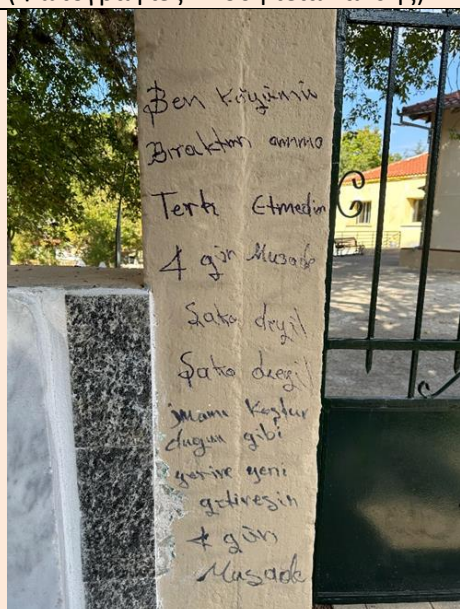 Ben Köyümü
Bıraktım amma
Terk Etmedim
4 gün Musade
Şaka deyil
Şaka deeyil
imamı Koştur
duğun gibi
yerine yeni
getiresin
4 gün
Musade